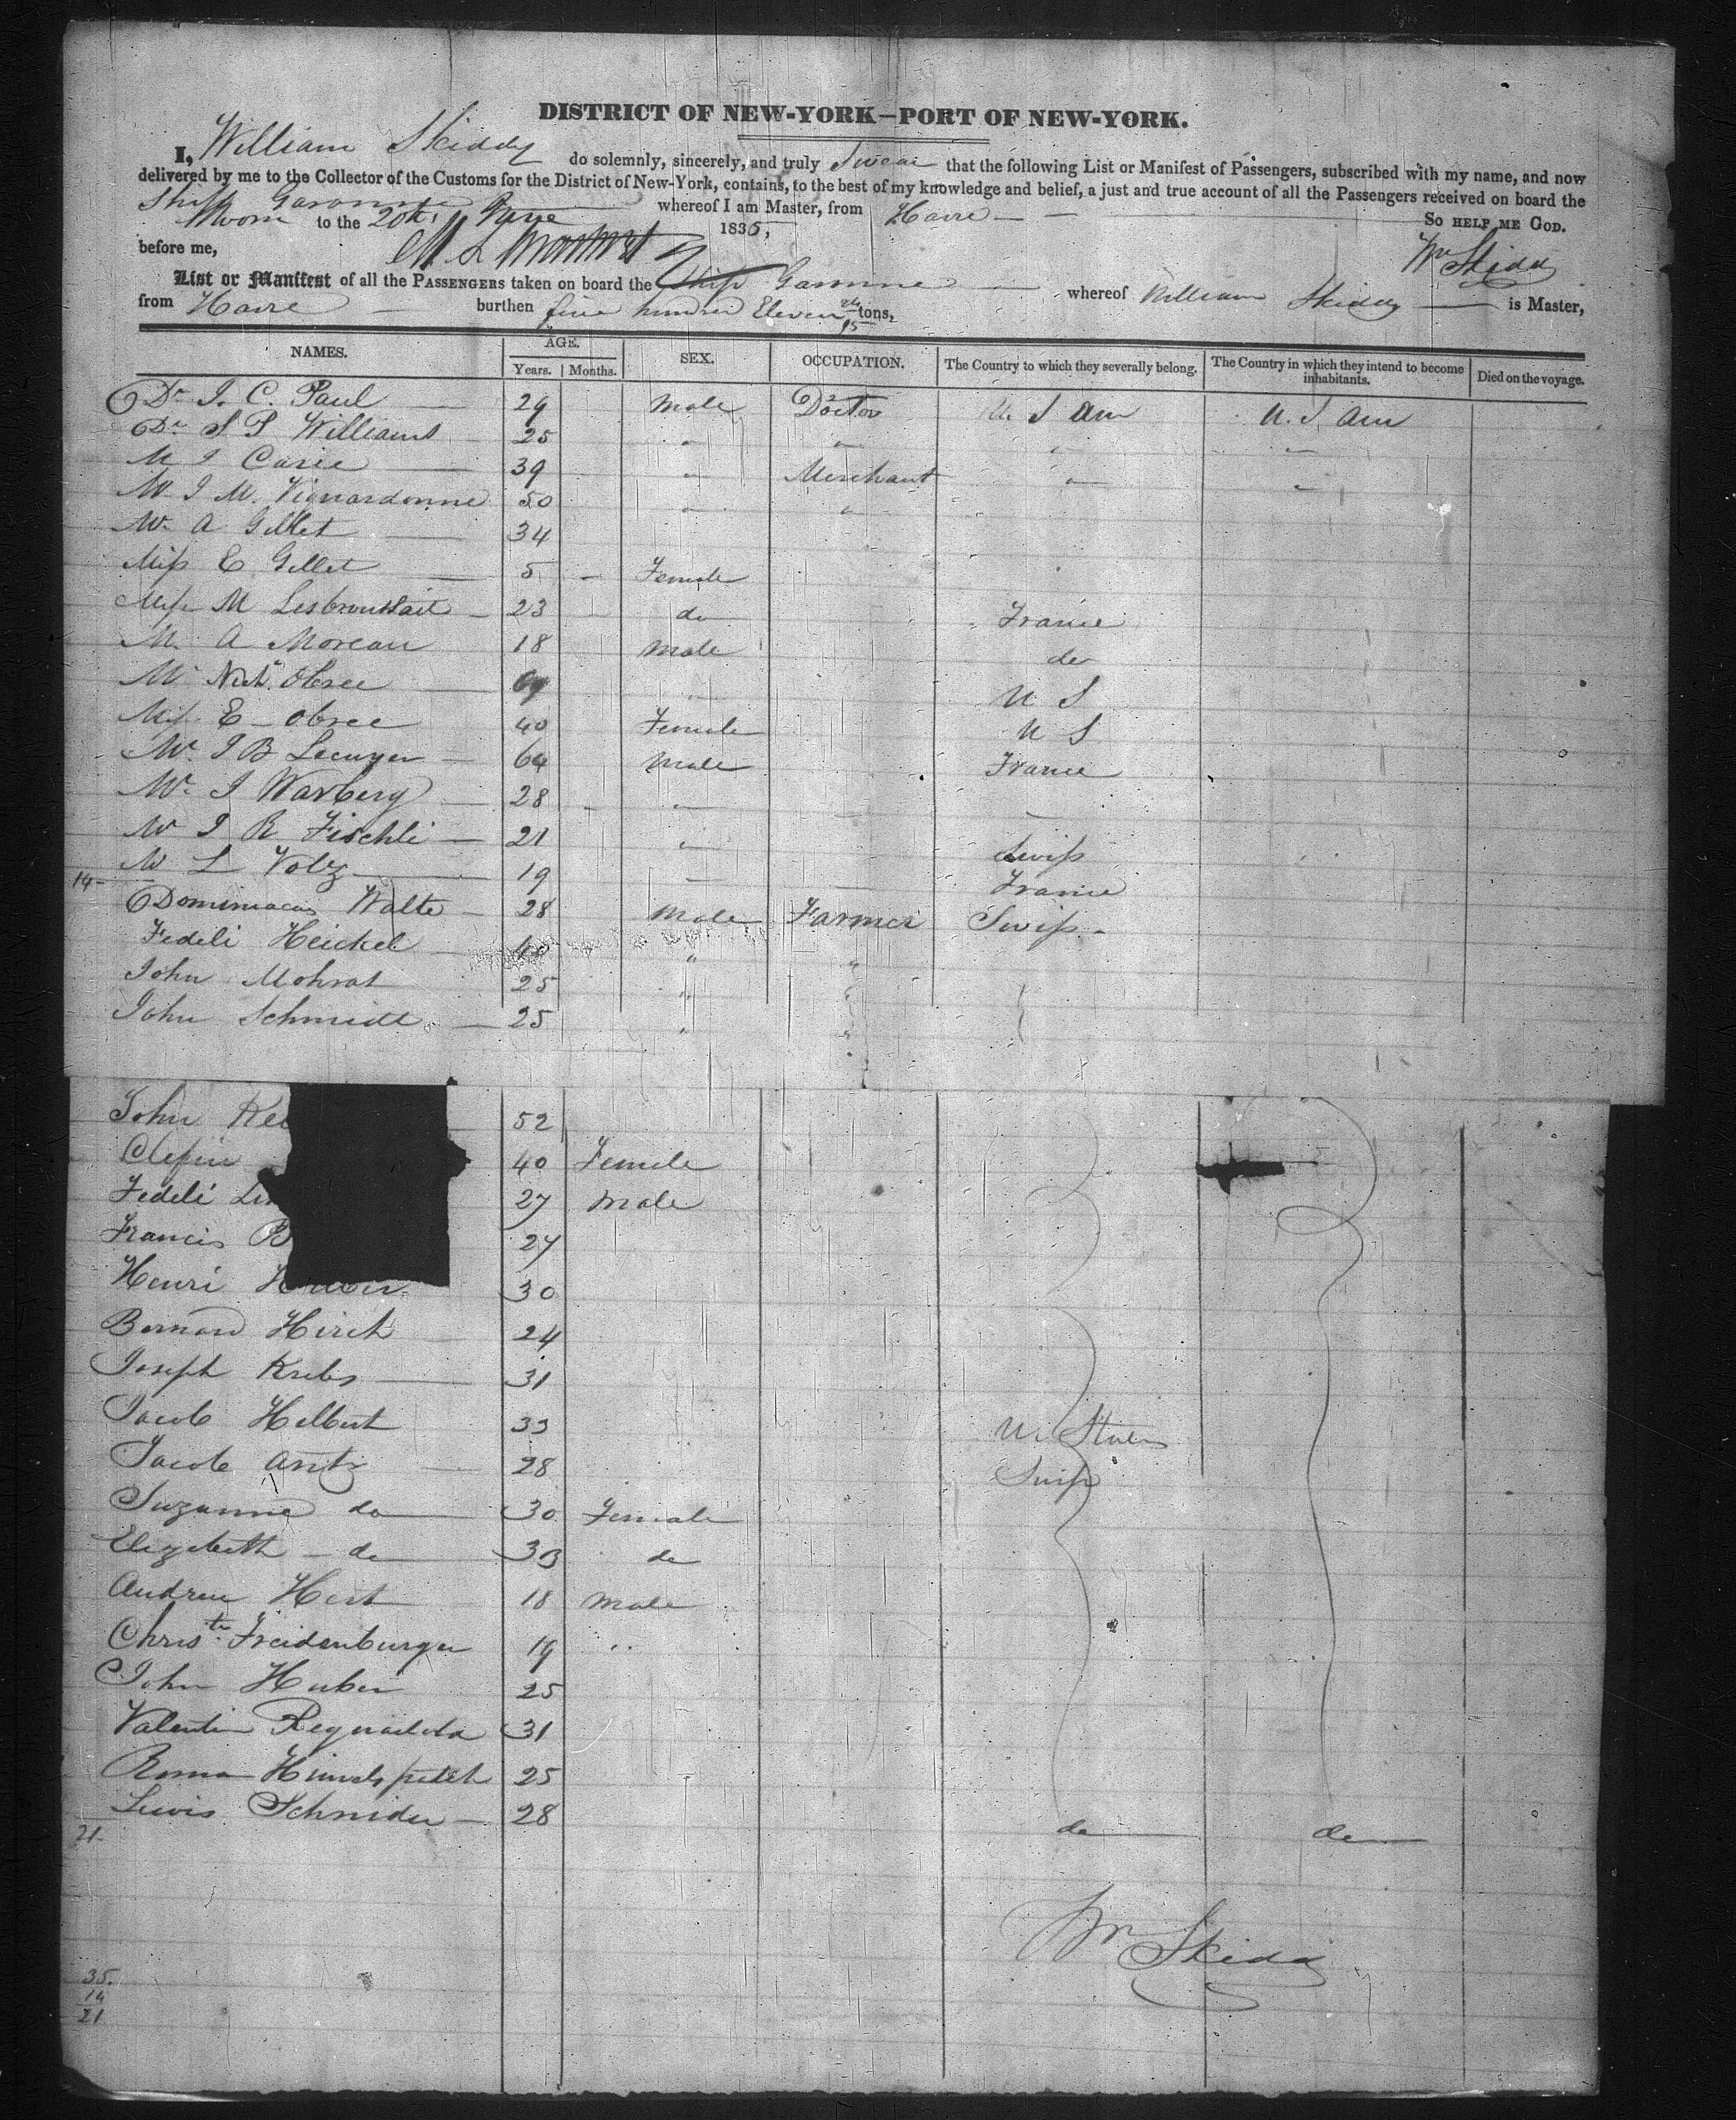 DISTRICT OF NEW-YORK—PORT OF NEW-YORK.
I, William Skiddy do solemnly, sincerely, and truly Swear that the following List or Manifest of Passengers, subscribed with my name, and now
delivered by me to the Collector of the Customs for the District of New-York, contains, to the best of my knowledge and belief, a just and true account of all the Passengers received on board the
Ship Garonne whereof I am Master, from Havre
Sworn to the 20th June 1835, So help me God.
before me, Wm Skiddy
List or Manifest of all the Passengers taken on board the Ship Garonne whereof William Skiddy is Master,
from Havre burthen five hundred Eleven tons,
NAMES. AGE. Years. Months. SEX. OCCUPATION. The Country to which they severally belong. The Country in which they intend to become inhabitants. Died on the voyage.
Dr I. C. Paul 29 male Doctor U S Am U. S. Am
Dr S P Williams 25 " " " "
M I Carie 39 " Merchant " "
M I M. Vignardonne 50 " "
Mr A Gillet 34
Miss E Gillet 5 Female
Miss M 23 do France
M. A Moreau 18 male do
M Nich. Obree U S
Miss E Obree 40 Female U S
Mr. I B Lecuyer 64 male France
Mr I Warberg 28 "
Mr I R Fischli 21 " Swiss
M L Volz 19 France
14
Walte 28 male Farmer Swiss
Fedeli Heickel 40 " "
John Mohrat 25 " "
John Schmidt 25 " "
John 52
40 Female
Fedeli 27 male
Francis B 27
Henri Huber 30
Bernard Hirch 24
Joseph Krebs 31
Jacob Helbert 33 U. States
Jacob Antz 28 Swiss
Suzanne do 30 Female
Elizabeth do 33 do
Andrew Hert 18 male
Christn Freidenburger 19 "
John Huber 25
Valentin 31
Roman 25
Lewis Schnider 28 do do
21
Wm Skiddy
35
14
21